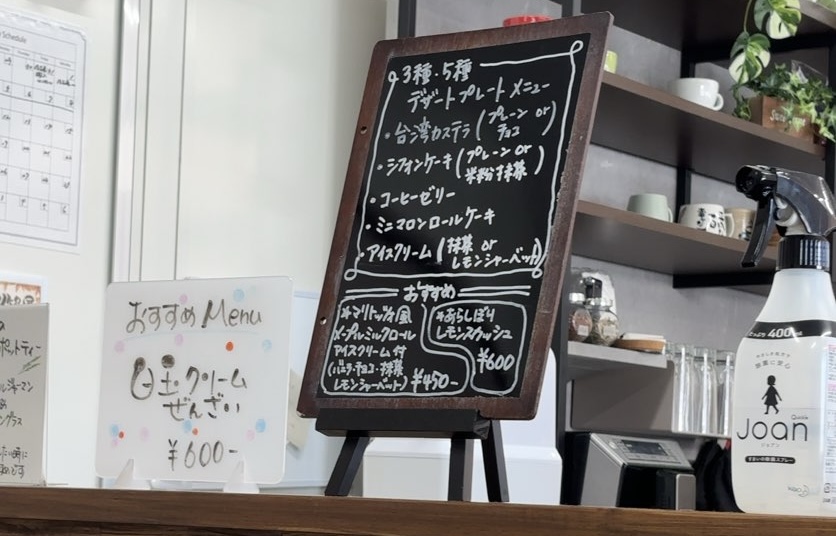 Schedule
おすすめ Menu
白玉クリーム
ぜんざい
¥600-
3種・5種
デザートプレート メニュー
・台湾カステラ(プレーン or チョコ)
・シフォンケーキ(プレーン or 米粉抹茶)
・コーヒーゼリー
・ミニマロンロールケーキ
・アイスクリーム(抹茶 or レモンシャーベット)
おすすめ
*マリトッツォ風
メープルミルクロール
アイスクリーム付
(バニラ・チョコ・抹茶
レモンシャーベット) ¥450-
*あらしぼり
レモンスカッシュ
¥600
たっぷり 400ml
Quickie
Joan
ジョアン
すまいの除菌スプレー